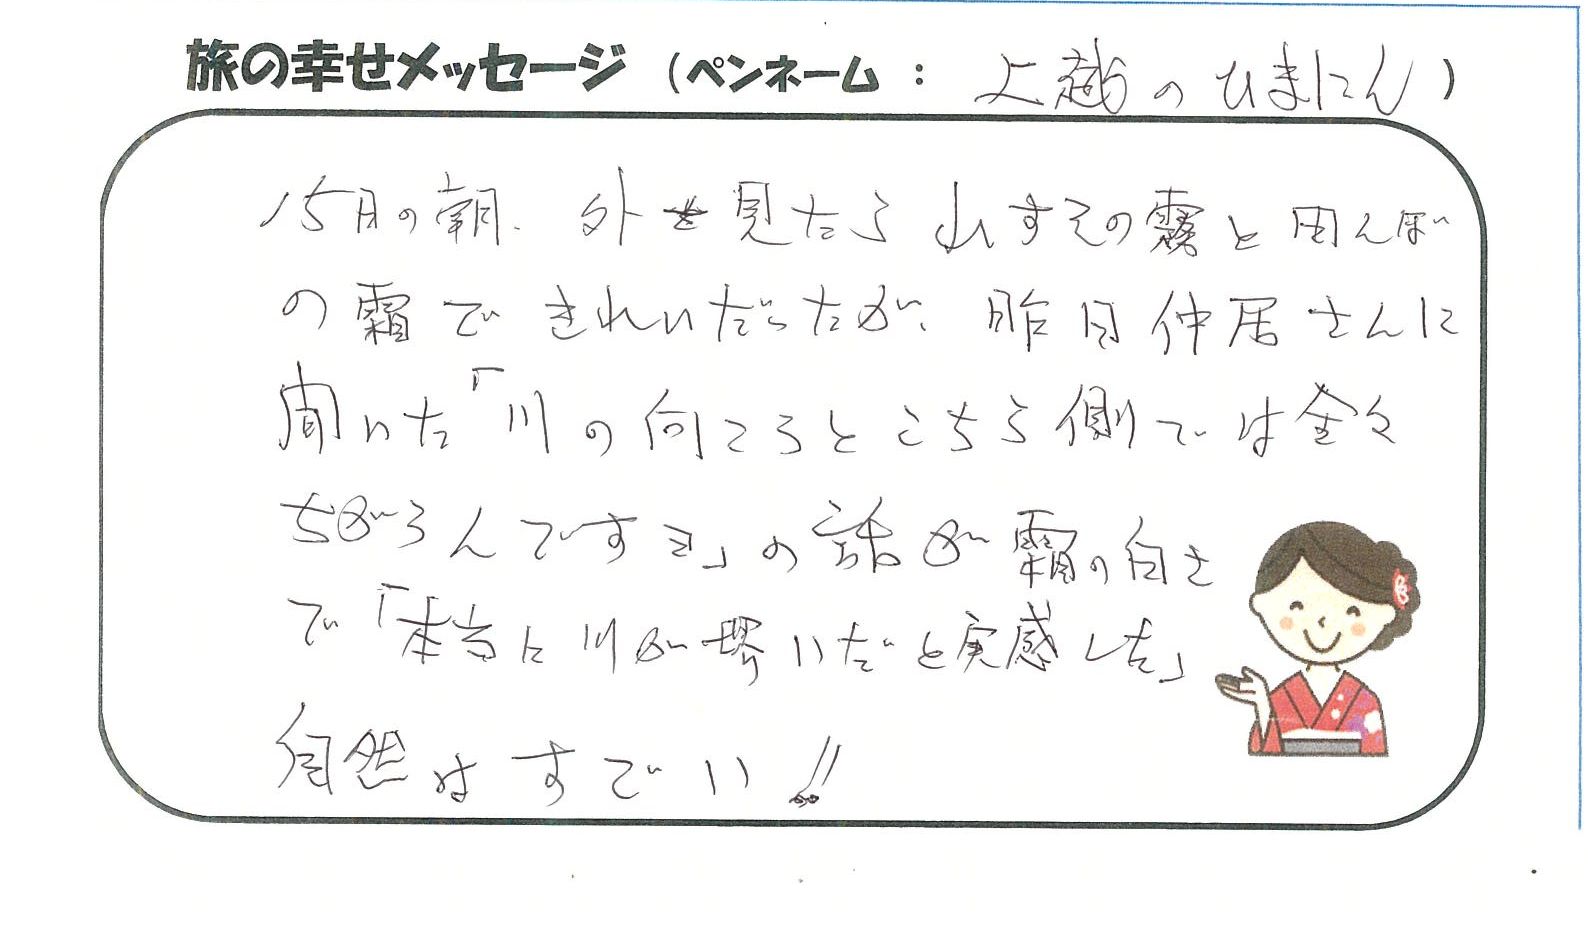 旅の幸せメッセージ (ペンネーム : 上越のひまじん)
15日の朝、外を見たら山すその霧と田んぼ
の霜できれいだったが、昨日仲居さんに
聞いた「川の向こうとこちら側では全々
ちがうんですヨ」の話が霜の白さ
で「本当に川が堺いだと実感した」
自然はすごい!!